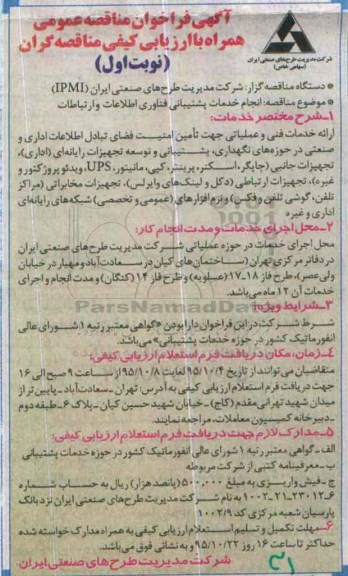 آگهی فراخوان مناقصه عمومی
همراه با ارزیابی کیفی مناقصه گران
(نوبت اول)
شرکت مدیریت طرح‌های صنعتی ایران
(سهامی خاص)
* دستگاه مناقصه گزار: شرکت مدیریت طرح‌های صنعتی ایران (IPMI)
* موضوع مناقصه: انجام خدمات پشتیبانی فناوری اطلاعات و ارتباطات
۱-شرح مختصر خدمات:
ارائه خدمات فنی و عملیاتی جهت تأمین امنیت فضای تبادل اطلاعات اداری و
صنعتی در حوزه‌های نگهداری، پشتیبانی و توسعه تجهیزات رایانه‌ای (اداری)،
تجهیزات جانبی (چاپگر، اسکنر، پرینتر، کپی، مانیتور، UPS، ویدئو پروژکتور و
غیره)، تجهیزات ارتباطی (دکل و لینک‌های وایرلس)، تجهیزات مخابراتی (مراکز
تلفن، گوشی تلفن و فکس) و نرم‌افزارهای (عمومی و تخصصی) شبکه‌های رایانه‌ای
اداری و غیره
۲-محل اجرای خدمات و مدت انجام کار:
محل اجرای خدمات در حوزه عملیاتی شرکت مدیریت طرح‌های صنعتی ایران
در دفاتر مرکزی تهران (ساختمان‌های کیان در سعادت‌آباد و مهیار در خیابان
ولی‌عصر)، طرح فاز ۱۸-۱۷ (عسلویه) و طرح فاز ۱۴ (کنگان) و مدت انجام و اجرای
خدمات آن ۱۲ ماه می‌باشد.
ParsNamadData
۳-شرایط ویژه:
شرط شرکت در این فراخوان دارا بودن «گواهی معتبر رتبه ۱ شورای عالی
انفورماتیک کشور در حوزه خدمات پشتیبانی» می‌باشد.
۴-زمان، مکان دریافت فرم استعلام ارزیابی کیفی:
متقاضیان می‌توانند از تاریخ ۹۵/۱۰/۴ لغایت ۹۵/۱۰/۸ از ساعت ۹ صبح الی ۱۶
جهت دریافت فرم استعلام ارزیابی کیفی به آدرس: تهران - سعادت‌آباد - پایین‌تر از
میدان شهید تهرانی مقدم (کاج) - خیابان شهید حسین کیان - پلاک ۶ - طبقه دوم
- دبیرخانه کمیسیون معاملات، مراجعه نمایند.
۵-مدارک لازم جهت دریافت فرم استعلام ارزیابی کیفی:
الف- گواهی معتبر رتبه ۱ شورای عالی انفورماتیک کشور در حوزه خدمات پشتیبانی
ب- معرفینامه کتبی از شرکت مربوطه
ج- فیش واریزی به مبلغ ۵۰۰,۰۰۰ (پانصد هزار) ریال به حساب شماره
به نام شرکت مدیریت طرح‌های صنعتی ایران نزد بانک
پارسیان شعبه مرکزی کد ۱۰۰۲/۹
۶-مهلت تکمیل و تسلیم استعلام ارزیابی کیفی به همراه مدارک خواسته شده
حداکثر تا ساعت ۱۶ روز ۹۵/۱۰/۲۲ و به نشانی فوق می‌باشد.
شرکت مدیریت طرح‌های صنعتی ایران